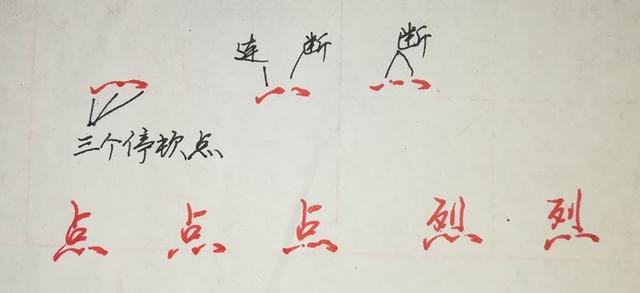 连 断 断
三个停顿点
点 点 点 烈 烈